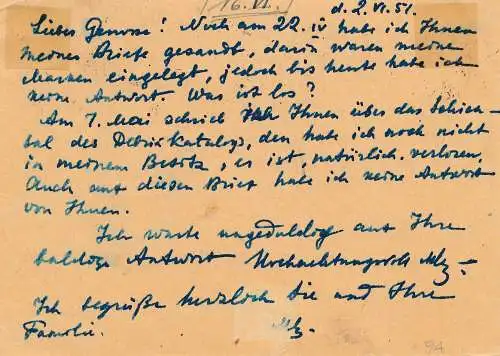 16.VI.
d. 2.VI.51.
Lieber Genosse! Noch am 22.IV habe ich Ihnen
meines Briefe gesandt, darin waren meine
Marken eingelegt, jedoch bis heute habe ich
keine Antwort. Was ist los?
Am 7. Mai schrieb ich Ihnen über das Schick-
sal des Katalogs, den habe ich noch nicht
in meinem Besitz, es ist, natürlich verloren,
Auch auf diesen Brief habe ich keine Antwort
von Ihnen.
Ich warte ungeduldig auf Ihre
baldige Antwort Hochachtungsvoll
Ich begrüße herzlich Sie und Ihre
Familie.